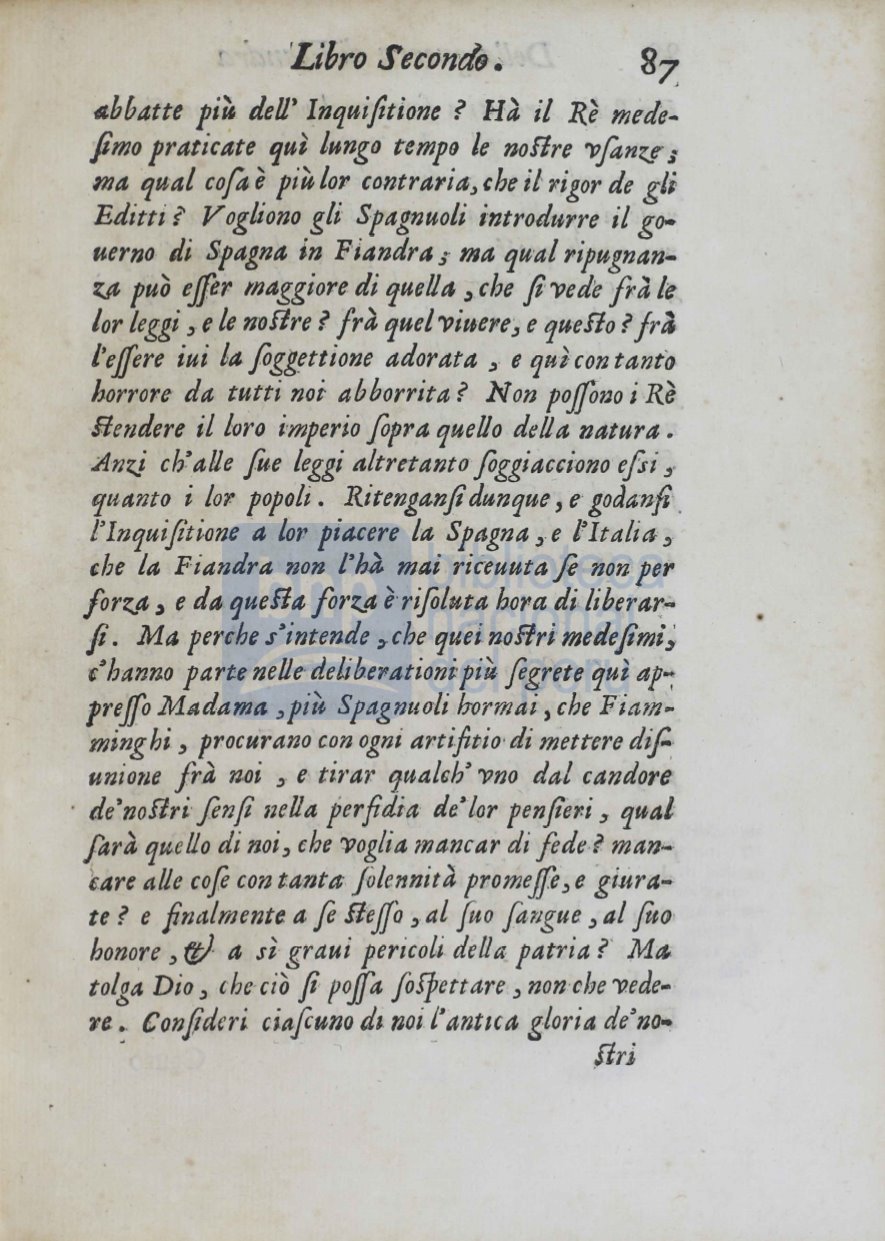 Libro Secondo. 87
abbatte più dell' Inquiſitione ? Hà il Rè mede-
ſimo praticate quì lungo tempo le noſtre vſanze;
ma qual coſa è più lor contraria, che il rigor de gli
Editti ? Vogliono gli Spagnuoli introdurre il go-
uerno di Spagna in Fiandra ; ma qual ripugnan-
za può eſſer maggiore di quella , che ſi vede frà le
lor leggi , e le noſtre ? frà quel viuere, e queſto ? frà
l'eſſere iui la ſoggettione adorata , e quì con tanto
horrore da tutti noi abborrita ? Non poſſono i Rè
ſtendere il loro imperio ſopra quello della natura .
Anzi ch'alle ſue leggi altretanto ſoggiacciono eſsi ,
quanto i lor popoli . Ritenganſi dunque , e godanſi
l'Inquiſitione a lor piacere la Spagna , e l'Italia ,
che la Fiandra non l'hà mai riceuuta ſe non per
forza , e da queſta forza è riſoluta hora di liberar-
ſi . Ma perche s'intende , che quei noſtri medeſimi,
c'hanno parte nelle deliberationi più ſegrete quì ap-
preſſo Madama , più Spagnuoli hormai , che Fiam-
minghi , procurano con ogni artifitio di mettere diſ-
unione frà noi , e tirar qualch' vno dal candore
de'noſtri ſenſi nella perfidia de'lor penſieri , qual
ſarà quello di noi, che voglia mancar di fede ? man-
care alle coſe con tanta ſolennità promeſſe, e giura-
te ? e finalmente a ſe ſteſſo , al ſuo ſangue , al ſuo
honore , & a sì graui pericoli della patria ? Ma
tolga Dio , che ciò ſi poſſa ſoſpettare , non che vede-
re . Conſideri ciaſcuno di noi l'antica gloria de'no-
ſtri